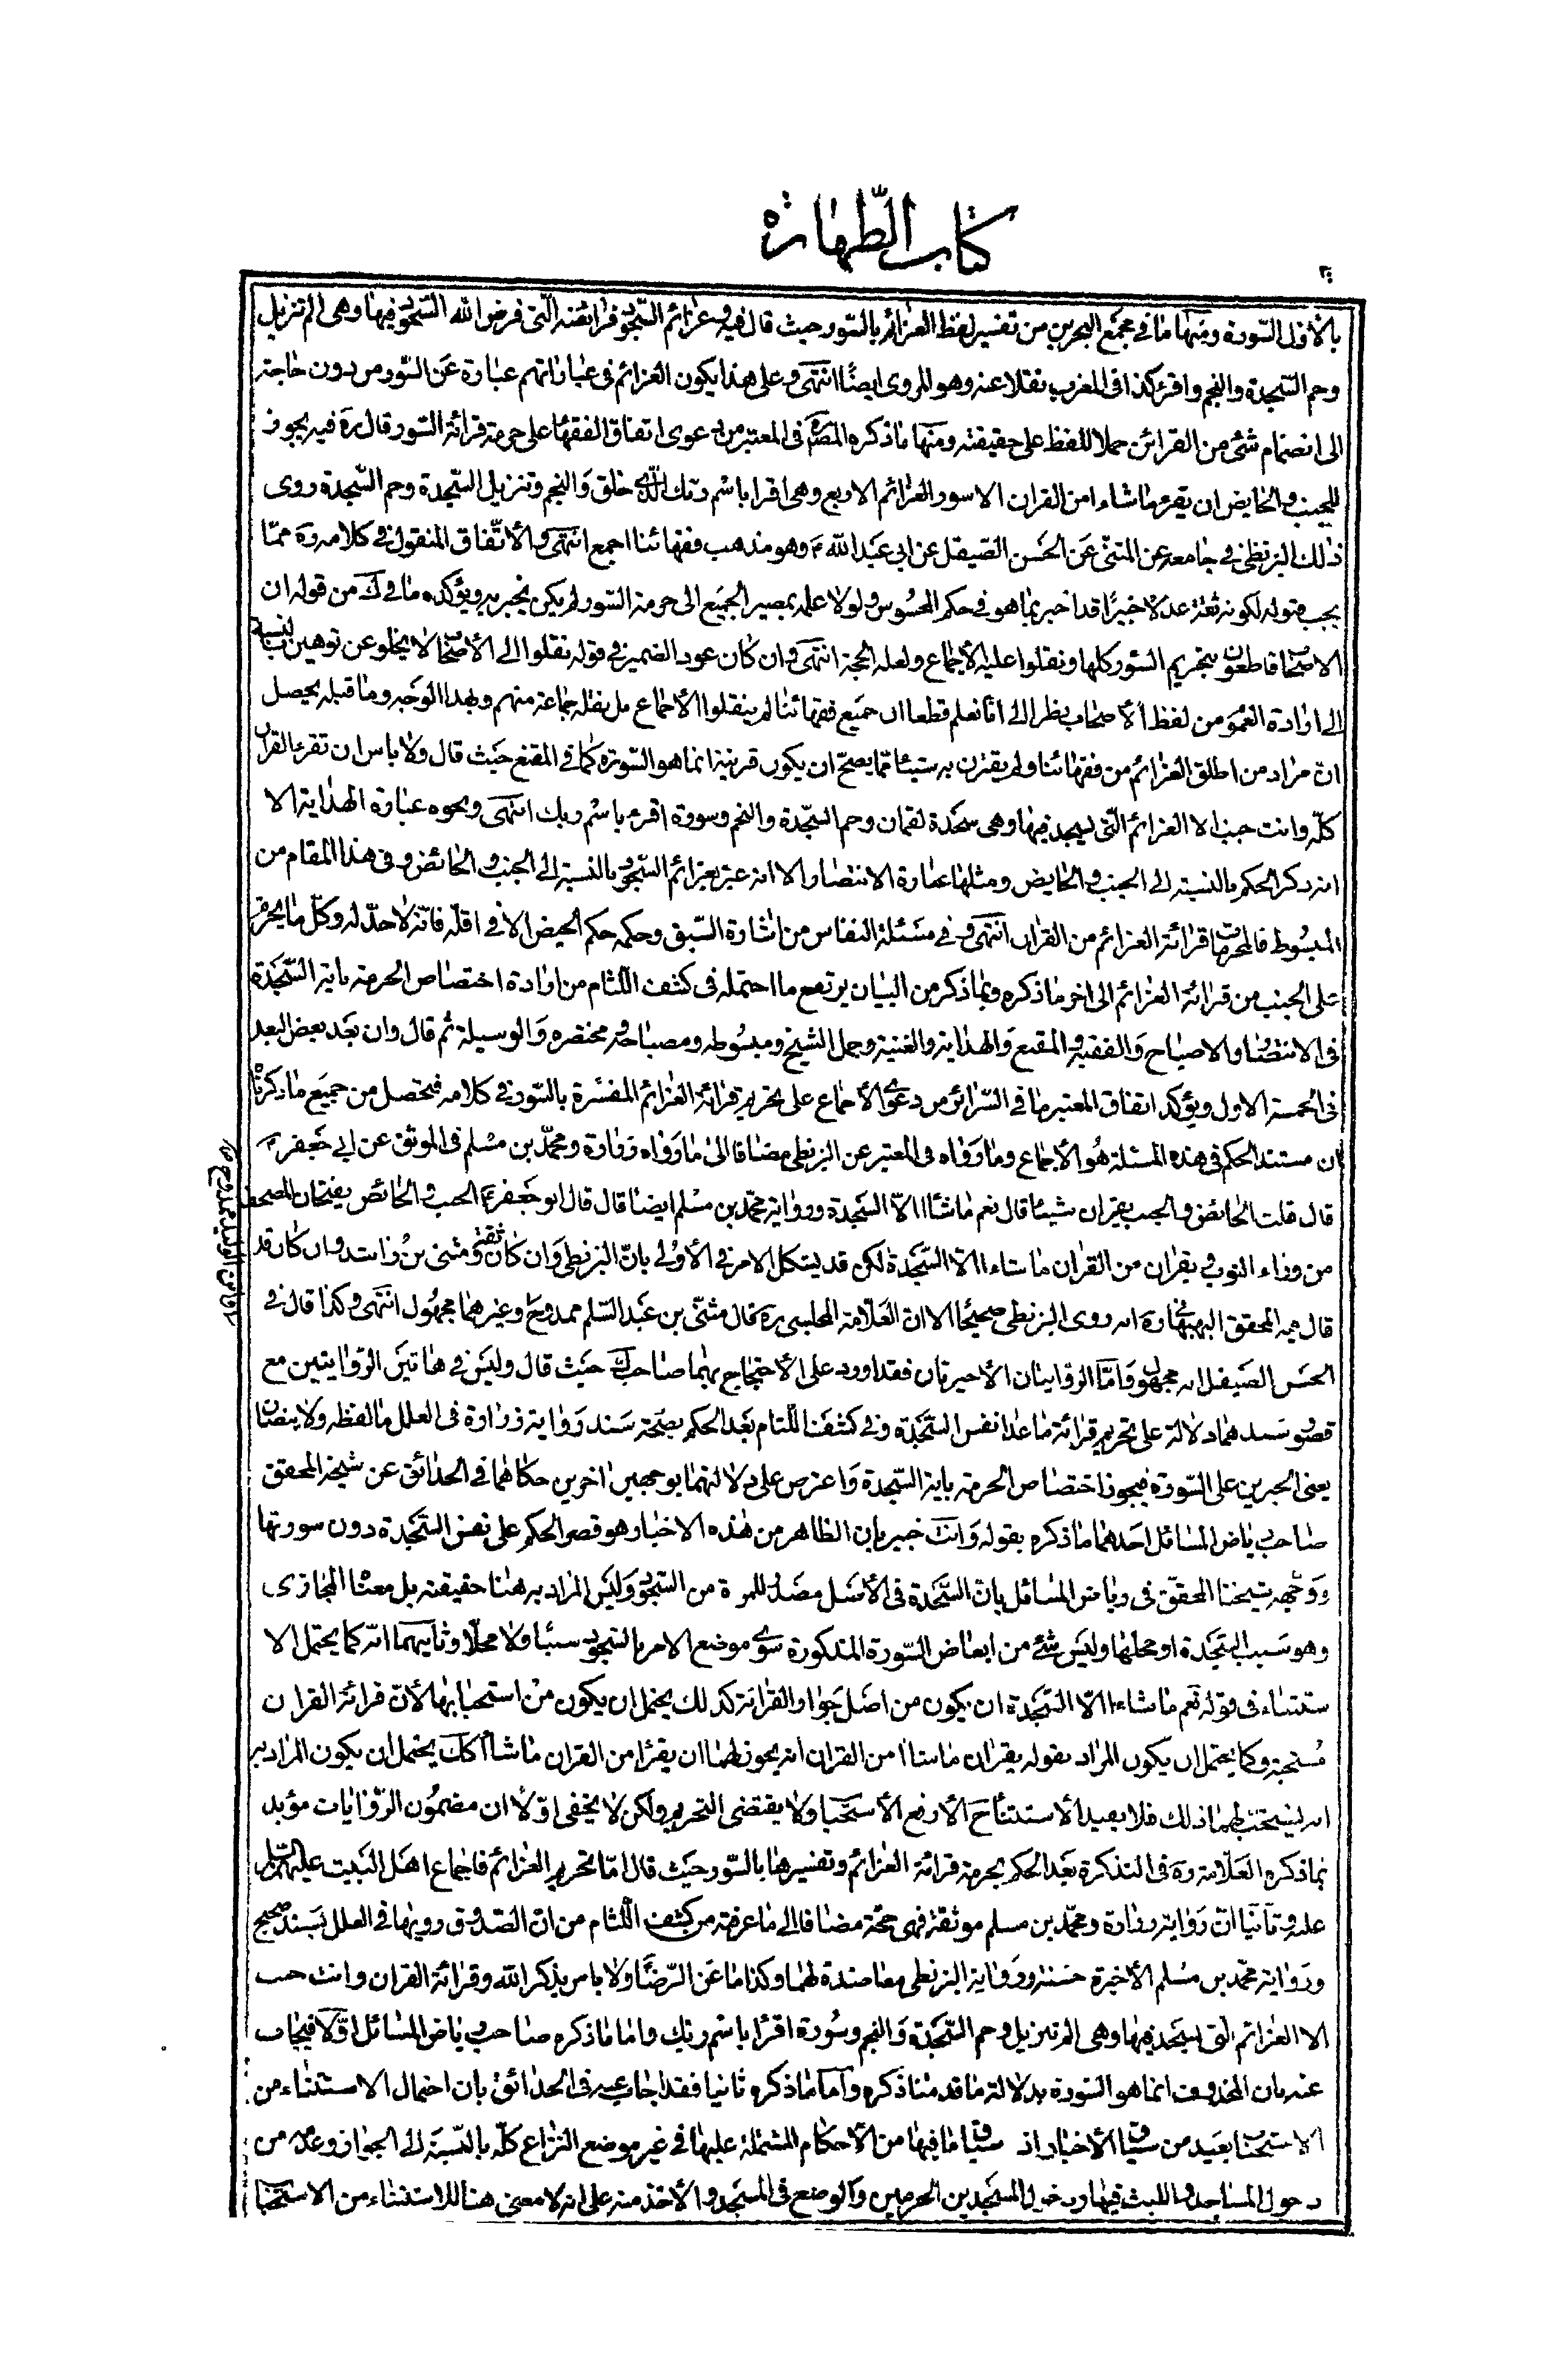 كتاب الطّهارة
بالاوّل السّورة ومنها ما فى مجمع البحرين من تفسير لفظ العزائم بالسّور حيث قال فيه وعزائم السّجود فرائضه الّتى فرض الله السّجود فيها وهى الم تنزيل
وحم السّجدة والنجم واقرء كذا فى المغرب نقلا عنه وهو المروى ايضًا انتهى وعلى هذا يكون العزائم فى عباراتهم عبارة عن السّور من دون حاجة
الى انضمام شئ من القرائن حملا للفظ على حقيقته ومنها ما ذكره المصره فى المعتبر من دعوى اتفاق الفقهاء على حرمة قرائة السّور قال ره فيه يجوز
للجنب والحايض ان يقرء ما شاءا من القران الا سور العزائم الاربع وهى اقرا باسم ربّك الّذى خلق والنجم وتنزيل السّجدة وحم السّجدة روى
ذلك البزنطى فى جامعه عن المثنّى عن الحسن الصّيقل عن ابى عبد الله ع وهو مذهب فقهائنا اجمع انتهى والاتّفاق المنقول فى كلامه ره ممّا
يجب قبوله لكونه ثقة عدلا خبيرًا قد اخبر بما هو فى حكم المحسوس ولولا علمه بمصير الجميع الى حرمة السّور لم يكن يخبر به ويؤكده ما فى ك من قوله ان
الاصحاب قاطعون بتحريم السّور كلها ونقلوا عليه الاجماع ولعله الحجة انتهى وان كان عود الضمير فى قوله نقلوا الى الاصحاب لا يخلو عن توهين بالنسبة
الى ارادة العموم من لفظ الاصحاب نظرا الى انّا نعلم قطعا ان جميع فقهائنا لم ينقلوا الاجماع بل نقله جماعة منهم وبهذا الوجه وما قبله يحصل
انّ مراد من اطلق العزائم من فقهائنا ولم يقترن به شيئا ممّا يصحّ ان يكون قرينة انما هو السّورة كما فى المقنع حيث قال ولا باس ان تقرء القران
كلّه وانت جنب الا العزائم الّتى يسجد فيها وهى سجدة لقمان وحم السّجدة والنجم وسورة اقرء باسم ربك انتهى ونحوه عبارة الهداية الا
انه ذكر الحكم بالنسبة الى الجنب والحايض ومثلها عبارة الانتصار الا انه عبّر بعزائم السّجود بالنسبة الى الجنب والحائض وفى هذا المقام من
المبسوط فالمحرمات قرائة العزائم من القران انتهى وفى مسئلة النفاس من اشارة السّبق وحكمه حكم الحيض الا فى اقلّه فانّه لا حدّ له وكلّ ما يحرم
على الجنب من قرائة العزائم الى اخر ما ذكره وبما ذكر من البيان يرتفع ما احتمله فى كشف اللّثام من ارادة اختصاص الحرمة باية السّجدة
فى الانتصار والاصباح والفقيه والمقنع والهداية والغنية وجمل الشيخ ومبسوطه ومصباحه ومختصره والوسيلة ثم قال وان بعد بعض البعد
فى الخمسة الاول ويؤكد اتفاق المعتبر ما فى السّرائر من دعوى الاجماع على تحريم قرائة العزائم المفسّرة بالسّور فى كلامه فتحصل من جميع ما ذكرناه
ان مستند الحكم فى هذه المسئلة هو الاجماع وما رواه فى المعتبر عن البزنطى مضافا الى ما رواه زرارة ومحمّد بن مسلم فى الموثق عن ابى جعفر ع
قال قلت الحائض والجنب يقران شيئا قال نعم ما شاءا الّا السّجدة ورواية محمّد بن مسلم ايضا قال قال ابو جعفر ع الجنب والحائض يفتحان المصحف
من وراء الثوب ويقران من القران ما شاءا الّا السّجدة لكن قد يشكل الامر فى الاولى بانّ البزنطى وان كان ثقة ومثنى بن راشد وان كان قد
قال فيه المحقق البهبهانى ره انه روى البزنطى صحيحًا الا ان العلّامة المجلسى ره قال مثنّى بن عبد السّلم ممدوح وغيرهما مجهول انتهى وكذا قال فى
الحسن الصّيقل انه مجهول وامّا الروايتان الاخيرتان فقد اورد على الاحتجاج بهما صاحب ك حيث قال وليس فى هاتين الرّوايتين مع
قصور سندهما دلالة على تحريم قرائة ما عدا نفس السّجدة وفى كشف اللّثام بعد الحكم بصحّة سند رواية زرارة فى العلل ما لفظه ولا ينصّان
يعنى الخبرين على السّورة فيجوز اختصاص الحرمة باية السّجدة واعترض على دلالتهما بوجهين اخرين حكاهما فى الحدائق عن شيخه المحقق
صاحب رياض المسائل احدهما ما ذكره بقوله وانت خبير بان الظاهر من هذه الاخبار هو قصر الحكم على نفس السّجدة دون سورتها
ووجّهه شيخنا المحقّق فى رياض المسائل بانّ السّجدة فى الاصل مصدر للمرة من السّجود وليس المراد به هنا حقيقته بل معناه المجازى
وهو سبب السّجدة او محلها وليس شئ من ابعاض السّورة المذكورة سوى موضع الامر بالسّجود سببا ولا محلّا وثانيهما انّه كما يحتمل الا
ستثناء فى قوله نعم ما شاءا الّا السّجدة ان يكون من اصل جواز القرائة كذلك يحتمل ان يكون من استحبابها لانّ قرائة القران
مستحبة وكما يحتمل ان يكون المراد بقوله يقران ما شاءا من القران انه يجوز لهما ان يقرا من القران ما شاءا كك يحتمل ان يكون المراد به
انه يستحب لهما ذلك فلا يفيد الاستثناء ح الا رفع الاستحباب ولا يقتضى التحريم ولكن لا يخفى اوّلا ان مضمون الرّوايات مؤيد
بما ذكره العلّامة ره فى التذكرة بعد الحكم بحرمة قرائة العزائم وتفسيرها بالسّور حيث قال امّا تحريم العزائم فاجماع اهل البيت عليهم السّلم
عليه وثانيا انّ رواية زرارة ومحمّد بن مسلم موثقة فهى حجّة مضافا الى ما عرفته من كشف اللّثام من انّ الصّدوق رويها فى العلل بسند صحيح
ورواية محمّد بن مسلم الاخيرة حسنة ورواية البزنطى معاضدة لهما وكذا ما عن الرّضا ولا باس بذكر الله وقرائة القران وانت جنب
الا العزائم الّتى يسجد فيها وهى الم تنزيل وحم السّجدة والنجم وسورة اقرا باسم ربك واما ما ذكره صاحب رياض المسائل اوّلا فيجاب
عنه بان المحذوف انما هو السّورة بدلالة ما قدمنا ذكره وامّا ما ذكره ثانيا فقد اجاب عنه فى الحدائق بان احتمال الاستثناء من
الاستحباب بعيد من سياق الاخبار اذ سياق ما فيها من الاحكام المشتملة عليها فى غير موضع النزاع كلّه بالنسبة الى الجواز وعدمه من
دخول المساجد واللبث فيها ودخول المسجدين الحرمين والوضع فى المسجد والاخذ منه على انه لا معنى هنا للاستثناء من الاستحباب